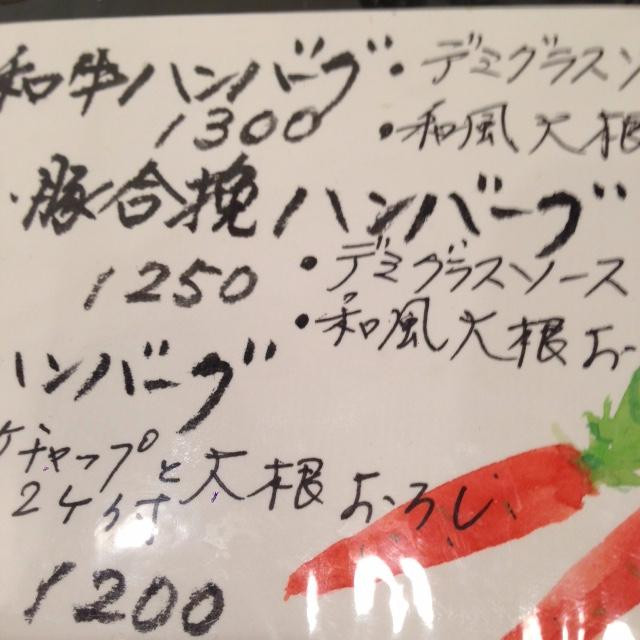 和牛ハンバーグ・デミグラスソ
1300 ・和風大根
・豚合挽ハンバーグ
1250 ・デミグラスソース
・和風大根お
ハンバーグ
ケチャップと大根おろし
2ケ付
1200